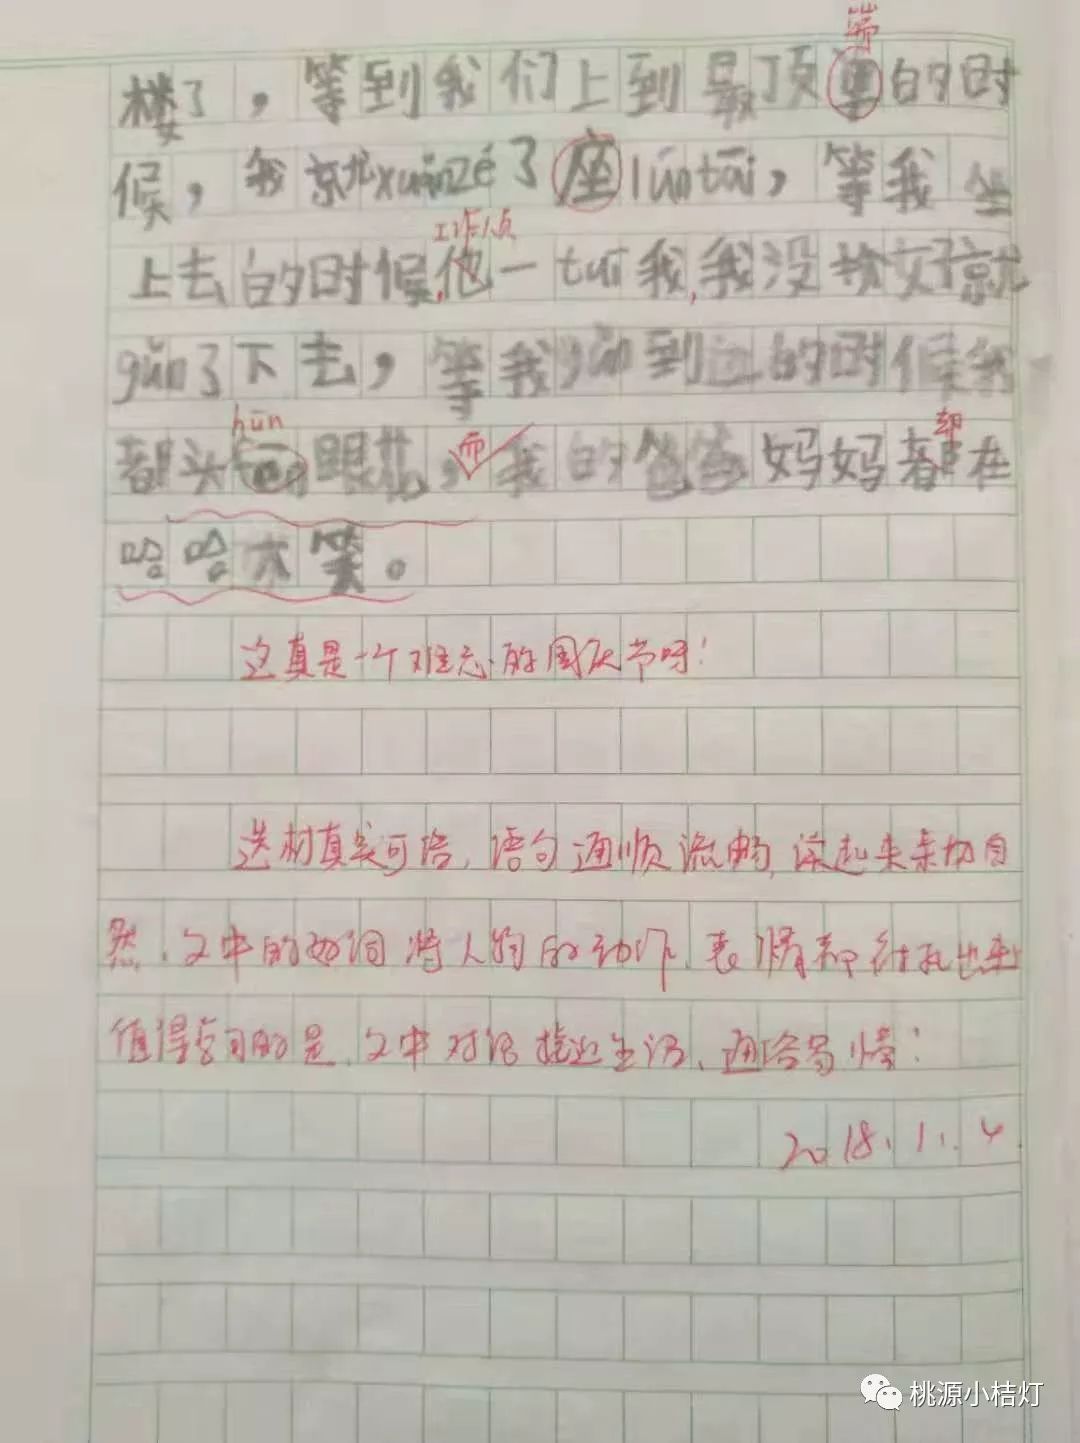 端
楼了，等到我们上到最顶端的时
候，我就xuǎnzé了座lúntāi，等我坐
工作人员
上去的时候，他一tuī我，我没扶好就
gǔn了下去，等我gǔn到边的时候我
hūn 却
都头 眼花，而我的爸爸妈妈都在
哈哈大笑。
这真是一个难忘的国庆节呀！
选材真实可信，语句通顺流畅，读起来亲切自
然，文中的动词将人物的动作、表情都 出来，
值得 的是，文中对话接近生活、通俗易懂！
2018.11.4
桃源小桔灯